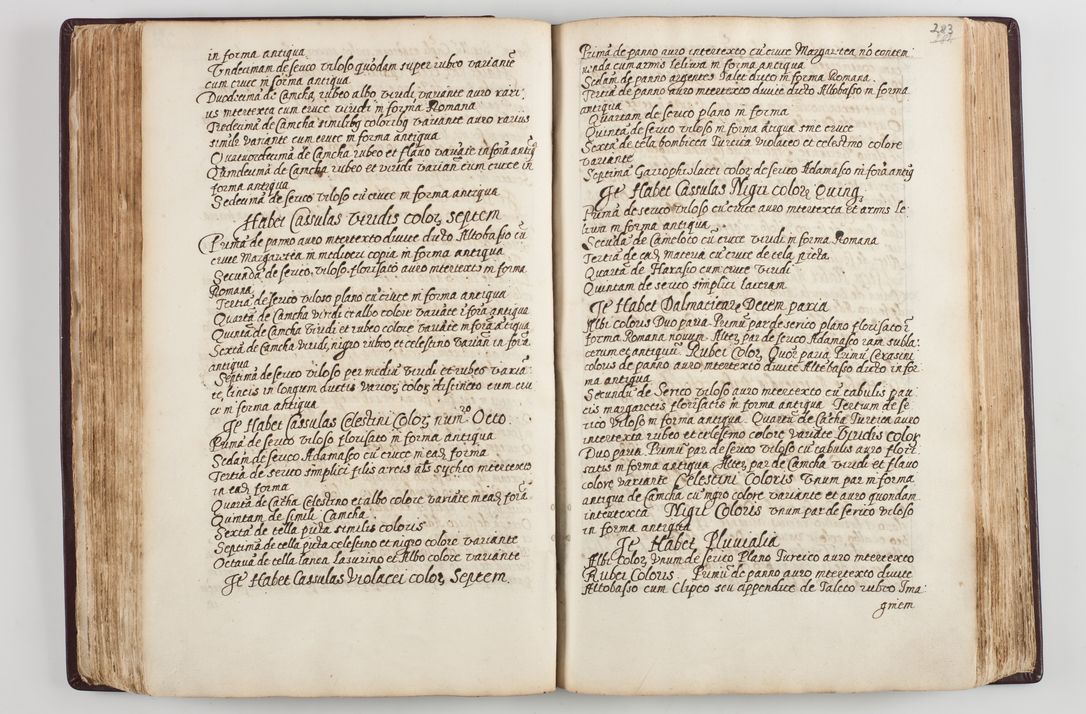 in forma antiqua
Vndecimam de serico viloso quodam super rubro variante
cum cruce in forma antiqua
Duodecimã de Camcha, rubeo albo viridi, variante auro rari
us intertexta cum cruce viridi in forma Romana
Tredecimã de Camcha similibq coloribq variante auro rarius
simile variante cum cruce in forma antiqua
Quatuordecimã de Camcha rubeo et flauo variãte in forã antiq
Quindecimã de Camcha rubeo et viridi varian cum cruce in
forma antiqua
Sedecimã de serico viloso cũ cruce in forma antiqua
Habet Cassulas viridis color septem
Primã de panno auro intertexto diuite dicto Altobasso cũ
cruce Margaritea in mediocri copia in forma antiqua
Secundã de serico, viloso, florisato auro intertexto in forma
Romana
Tertiã de serico viloso plano cũ cruce in forma antiqua
Quartã de Camcha viridi et albo colore variãte ĩ forã antiqua
Quintã de Camcha viridi et rubeo colore variãte in forã ãtiqua
Sextã de Camcha viridi, nigro rubeo et celestino varian in forã
antiqua
Septimã de serico viloso per mediũ viridi et rubeo varia-
te, lineis in longum ductis varior color distincto cum cru
ce in forma antiqua
Ite Habet Cassulas Celestini Color numro Octo.
Primã de serico viloso florisato in forma antiqua
Sedam de serico Adamasco cũ cruce in ead forma
Tertiã de serico simplici filis arcis als sychto intertexto
in ead forma
Quartã de Cãcha Celestino et albo colore variãte in ead forã
Quintam de simili Camcha.
Sextã de tella picta similis coloris
Septimã de tella picta celestino et nigro colore variante
Octauã de tella lanea Lasurino et Albo colore variante
Ite Habet Cassulas Violacei color Septem.
283
Primã de panno auro intertexto cũ cruce Margaritea nõ contem
nenda cum armis Leliwa in forma antiqua
Sedam de panno argenteo Talet dicto in forma Romana.
Tertiã de panno auro intertexto diuite dicto Altobasso in forma
antiqua
Quartam de serico plano in forma
Quintã de serico viloso in forma ãtiqua sine cruce
Sextã de tela bombicea Turcica violaceo et celestino colore
variante
Septimã Garrophilacei color de serico Adamasco in forã antiq
Ite Habet Cassulas Nigri color Quinq
Primã de serico viloso cũ cruce auro intertexta et armis Le
liwa in forma antiqua
Secundã de Cameloto cũ cruce viridi in forma Romana
Tertiã de ead materia cũ cruce de tela picta
Quartã de Harasio cum cruce viridi
Quintam de serico simplici laceram
Ite Habet Dalmaticar Decem paria
Albi coloris Duo paria Primũ par de serico plano florisato ĩ
forma Romana nouum. Alter par de serico Adamasco iam subla-
cerum et antiquũ. Rubei Color Quor paria Primũ Cerasini
coloris de panno auro intertexto diuite Altobasso dicto in for
ma antiqua
Secundũ de Serico viloso auro intertexto cũ tabulis pau
cis margareteis florisatis in forma antiqua Tertium de se
rico viloso in forma antiqua. Quartũ de Cãcha Turcica auro
intertexta rubeo et celestino colore variãte Viridis color
Duo paria Primũ par de serico viloso cũ tabulis auro flori
satis in forma antiqua Alter par de Camcha viridi et flauo
colore variante Celestini Coloris Vnum par in forma
antiqua de camcha cũ nigro colore variante et auro quondam
intertexta Nigri Coloris vnum par de serico viloso
in forma antiqua
Ite Habet Pluuialia
Albi Color Vnum de serico Plano Turcico auro intertexto
Rubei Coloris. Primũ de panno auro intertexto diuite
Altobasso cum Clipeo seu appendice de Taleto rubeo Ima-
ginem